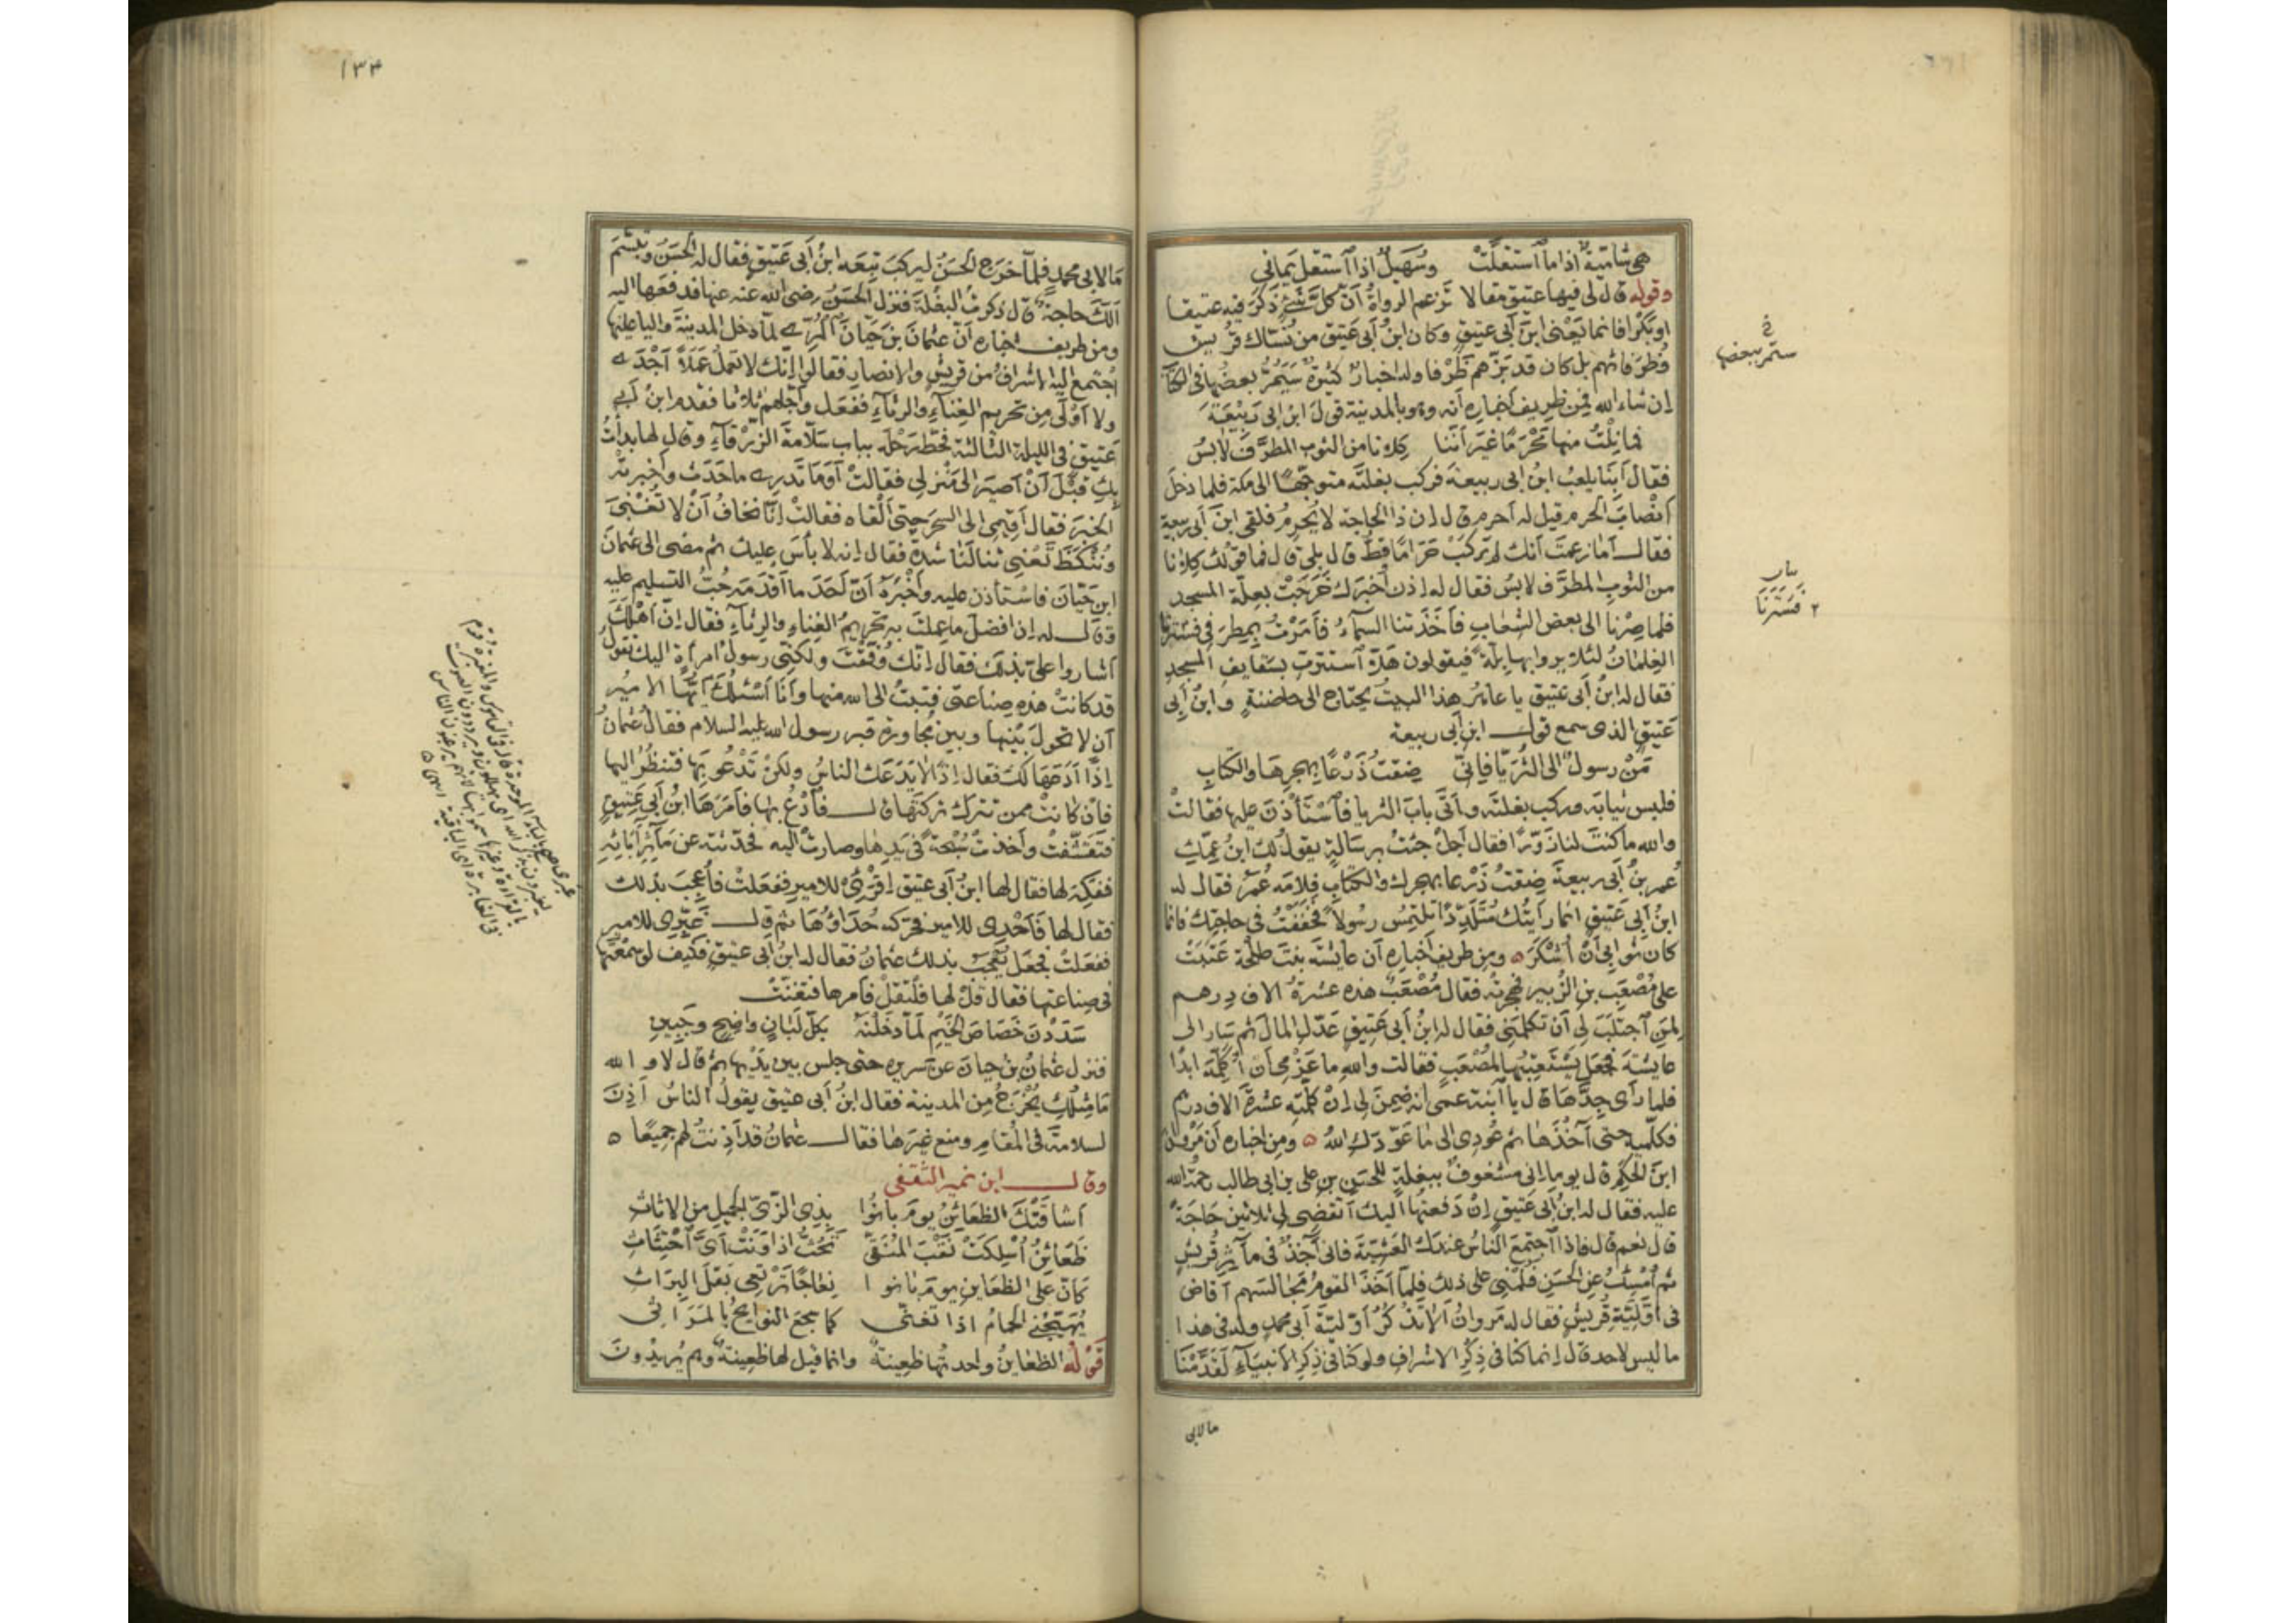 هي شامية اذا ما استقلّت وسُهَيلٌ اذا استقل يماني
وقوله قال لي فيها عتيق مقالا تزعم الرواةُ أنّ كلّ شيءٍ ذكر فيه عتيقا
او بكرا فانما يَعْني ابنَ أبي عتيق وكان ابنُ أبي عتيق من نُسّاك قريش
وظُرَفائهم بل كان قد بَزّهم ظَرْفا وله اخبارٌ كثيرةٌ سَيَمُرُّ بعضُها في الكتاب
إن شاء الله فمن ظريف أخباره أنه وهو بالمدينة قولَ ابن ابي ربيعةَ
فما نِلْتُ منها مَحْرَمًا غيرَ أنّنا كِلانا من الثوب المطرَّف لابسُ
فقال أبِنا يلعبُ ابنُ ابي ربيعةَ فركب بغلتَه متوجّهًا الى مكة فلما دخل
أنْصابَ الحرم قيل له أحرم قال إن ذا الحاجة لا يُحرمُ فلقي ابنَ أبي ربيعة
فقال أما زعمتَ أنك لم تركبْ حَرَامًا قطُّ قال بلى قال فما قولك كلانا
من الثوب المطرَّف لابسُ فقال له إذن أخبرك خَرَجَتْ بعلّة المسجد
فلما صِرْنا الى بعض الشعاب فأخذتنا السماءُ فأمرْتُ بمِطرَفي فسترنا
الغلمانُ لئلا يروا بها بِلّةً فيقولون هَلّا استترتِ بسقايف المسجد
فقال له ابنُ أبي عتيق يا عاهرُ هذا البيتُ يحتاج الى حاضنةٍ وابنُ أبي
عتيق الذي سمع قول ابن أبي ربيعة
مَنْ رسولٌ الى الثُّرَيّا فإنّي ضِقتُ ذَرْعًا بهجرها والكتابِ
فلبس ثيابَه وركب بغلتَه وأتَى بابَ الثريا فاسْتأذنَ عليها فقالتْ
والله ما كنتَ لنا زَوّرًا فقال أجلْ جئتُ برسالةٍ يقول لكِ ابنُ عمّكِ
عُمر بنُ أبي ربيعة ضِقتُ ذَرْعا بهجرك والكتاب فلامَه عُمَرُ فقال له
ابنُ أبي عتيق انما رأيتُك مُتَلَدِّدًا تلتمِسُ رسولاً فخَفَفْتُ في حاجتك فانما
كان ثوابي أنْ أُشكَرَ ٥ ومِن طريف أخباره أن عايشةَ بنتَ طلحة عَتَبَتْ
على مُصْعَب بن الزُّبير فهجرتْه فقال مُصْعَبٌ هذه عشرةُ الاف درهم
لمَنِ احتلبَ لي أن تكلّمَني فقال له ابنُ أبي عتيق عَدِّل المالَ ثم سار الى
عايشة فجعل يَسْتعتِبُها لمُصْعَبٍ فقالت والله ما عَزْمي أن أُكلّمَه ابدًا
فلما رأى جِدَّها قال يا ابنة عمي إنه ضمن لي إنْ كلّمتِه عشرةَ الاف درهم
فكلّميه حتى آخُذَها ثم عُودي الى ما عَوّدَك اللهُ ٥ ومن اخباره أن مَرْوانَ
ابنَ الحكم قال يوما إني مشغوفٌ ببغلةٍ للحَسَن بن علي بن ابي طالب رحمة الله
عليه فقال له ابنُ أبي عتيق إنْ دَفعتُها اليك أتقضي لي ثلاثين حاجةً
قال نعم قال فاذا اجتمع الناسُ عندك العَشِيّةَ فاني آخِذٌ في مآثِرِ قُريش
ثم أُمْسِكُ عن الحَسَن فلُمْني على ذلك فلمّا أخَذَ القومُ مَجالسَهم أفاض
في أوّليّة قُريش فقال له مَروانُ ألا تَذْكُرُ أوّليّةَ أبي محمدٍ وله في هذا
ما ليس لاحد قال إنما كنا في ذِكْر الاشراف ولو كنا في ذِكر الأنبياء لَقَدَّمْنَا
مالابي
سيمر ببعضها
فَسَتَرَنا
١٣٣
ما لابي محمدٍ فلمّا خرَج الحَسَنُ ليركبَ تبِعَه ابنُ أبي عتيق فقال له الحَسَنُ وتبسّم
ألكَ حاجةٌ قال ذكرتُ البغلةَ فنزل الحَسَنُ رضي الله عنه عنها فدفعها اليه
ومن طريف اخباره أن عثمانَ بنَ حَيّانَ المُرّيّ لمّا دخل المدينةَ واليا عليها
اجتمع اليه الاشرافُ من قريش والانصار فقالوا إنّك لا تعملُ عَمَلاً أجْدَى
ولا أوْلَى مِن تحريم الغِناء والرثاء ففعَل وأجّلهم ثلاثا فقدم ابنُ أبي
عتيق في الليلة الثالثة فحطّ رَحْلَه بباب سَلّامةَ الزّرْقاء وقال لها بدأتُ
بكِ قبل أنْ أصيرَ الى مَنْزلي فقالتْ أوَمَا تَدري ما حَدَث وأخبرتْه
الخبرَ فقال أقيمي الى السحَر حتى ألقاه فقالتْ إنّا نخافُ أنْ لا تُغْنيَ
ونُنْكَظَ تَعْني ثنا لنا شدة فقال إنه لا بأسَ عليك ثم مضى الى عثمانَ
ابن حَيّانَ فاستأذن عليه وأخبرَه أنّ أحَدَ ما أقدَمَه حُبُّ التسليم عليه
وقال له إن افضل ما عمِلتَ به تحريمُ الغِناء والرثاء فقال إنّ أهْلَكَ
أشاروا عليّ بذلك فقال إنّك وُفِّقتَ ولكنّي رسولُ امرأة اليك تقول
قد كانتْ هذه صِناعتي فتبتُ الى الله منها وأنا أسْئَلُكَ أيّها الاميرُ
أن لا تحولَ بينها وبين مُجاورة قبر رسول الله عليه السلام فقال عثمانُ
إذًا أدَعَها لك فقال إذًا لا يَدَعَك الناسُ ولكنْ تَدْعُو بها فتنظُرُ اليها
فإن كانتْ ممن تترك تركتَها قال فادْعُ بها فأمَرَها ابنُ أبي عتيق
فتقشّفتْ وأخذتْ سُبْحَةً في يَدِها وصارتْ اليه فحدّثتْه عن مآثِرِ آبائه
ففَكِهَ لها فقال لها ابنُ أبي عتيق اقرئي للامير ففعلتْ فأُعجِبَ بذلك
فقال لها فاحْدي للامير فحرّكه حُداؤها ثم قال غَبِّري للامير
ففعلتْ فجعل يَعْجَبُ بذلك عثمانُ فقال له ابنُ أبي عتيق فكيف لو سمعتَها
في صناعتها فقال قلْ لها فلْتقُلْ فأمرها فتغنّتْ
سَدَدْنَ خَصَاصَ الخَيْم لمّا دَخَلْنَهُ بكلّ لَبَانٍ واضِحٍ وجَبينِ
فنزل عثمانُ بنُ حيانَ عن سريره حتى جلس بين يَدَيْها ثم قال لا والله
ما مِثلُكِ يُخْرَجُ من المدينة فقال ابنُ أبي عتيق يقولُ الناسُ أذِنَ
لسلامةَ في المُقام ومنع غيرَها فقال عثمانُ قد أذِنتُ لهم جميعًا ٥
وقال ابن نمير الثقفي
أشاقَتْكَ الظعائنُ يومَ بانُوا بذي الزّيّ الجميل من الاثاث
ظعائنُ أُسْلِكَتْ نَقْبَ المُنَقّى تُحَثُّ اذا وَنَتْ أيَّ احتِثاثِ
كأنّ على الظعاين يومَ بانوا نِعاجًا تَرْتعي بَقْلَ البِرَاث
يُهَيّجُني الحَمامُ اذا تَغَنّى كما سجع النوايحُ بالمَراثي
قولُه الظعاينُ واحدتُها ظعينةٌ وانما قيل لها ظعينةٌ وهم يُريدُونَ